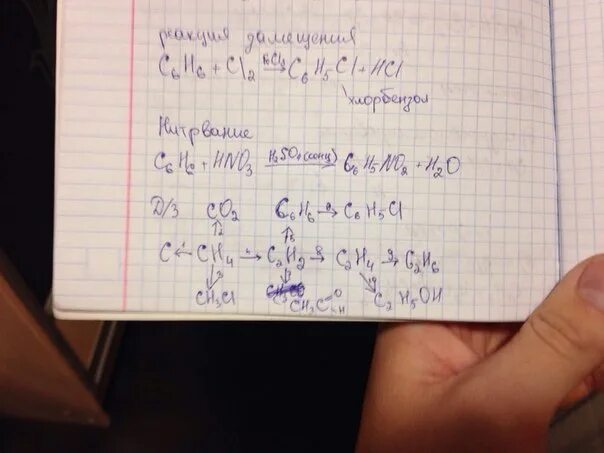 реакция замещения
C₆H₆ + Cl₂ → C₆H₅Cl + HCl
хлорбензол
Нитрвание
C₆H₆ + HNO₃ H₂SO₄(конц)→ C₆H₅NO₂ + H₂O
Д/З CO₂ C₆H₆ → C₆H₅Cl
C ← CH₄ → C₂H₂ → C₂H₄ → C₂H₆
CH₃Cl CH₃C=O H C₂H₅OH